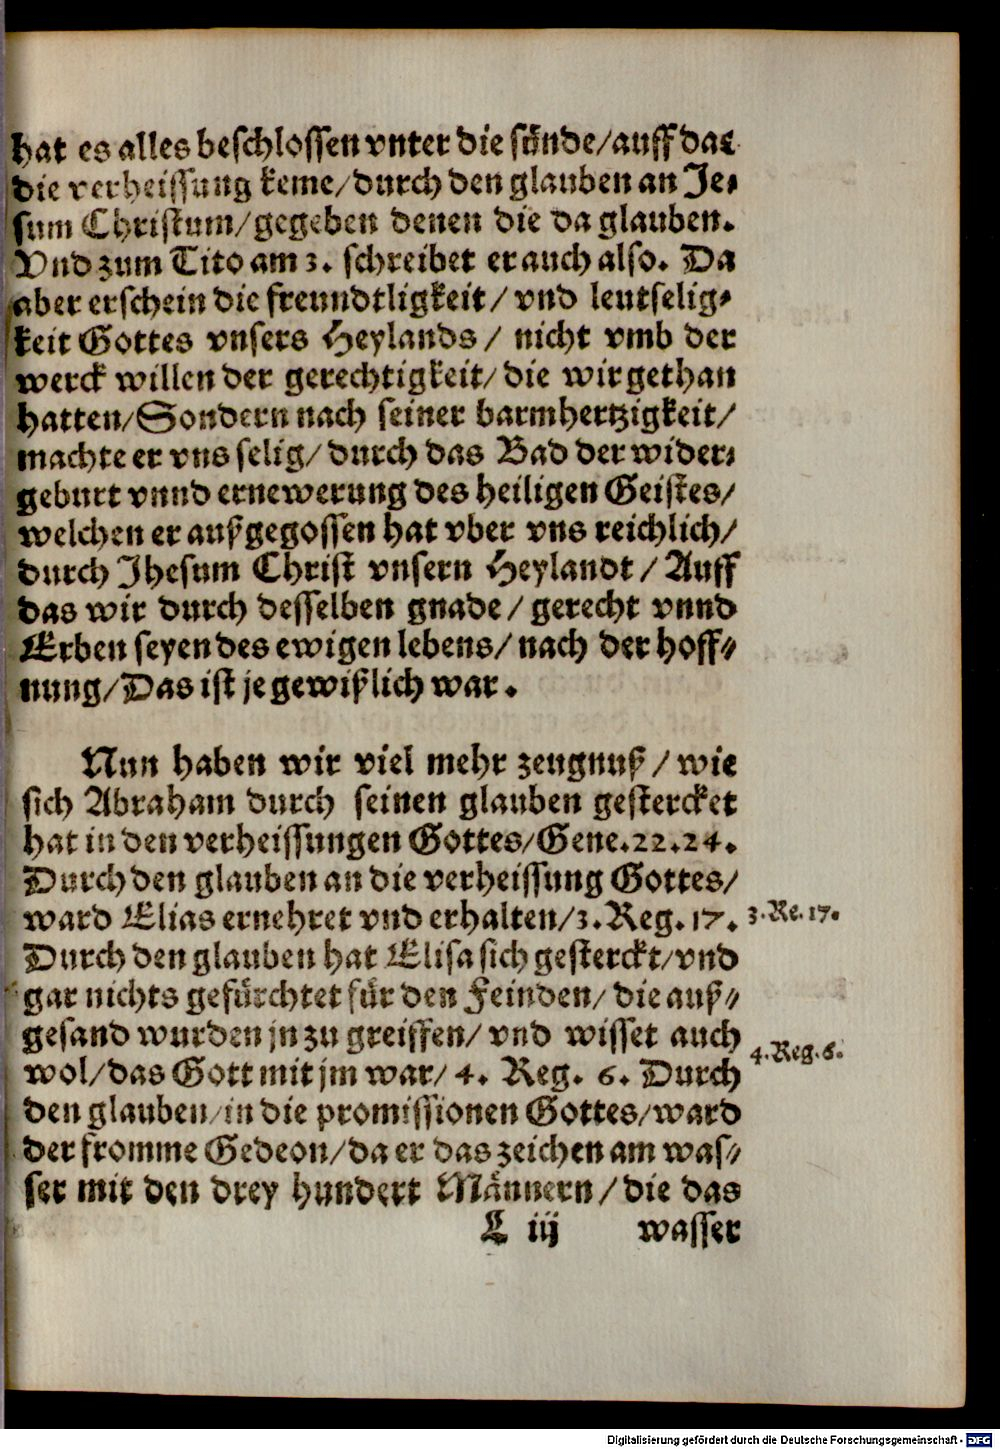 hat es alles beschlossen vnter die sünde/auff das
die verheissung keme/durch den glauben an Je-
sum Christum/gegeben denen die da glauben.
Vnd zum Tito am 3. schreibet er auch also. Da
aber erschein die freundtligkeit/ vnd leutselig-
keit Gottes vnsers Heylands/ nicht vmb der
werck willen der gerechtigkeit/ die wir gethan
hatten/Sondern nach seiner barmhertzigkeit/
machte er vns selig/ durch das Bad der wider-
geburt vnnd ernewerung des heiligen Geistes/
welchen er außgegossen hat vber vns reichlich/
durch Jhesum Christ vnsern Heylandt/ Auff
das wir durch desselben gnade/ gerecht vnnd
Erben seyen des ewigen lebens/ nach der hoff-
nung/Das ist je gewißlich war.
Nun haben wir viel mehr zeugnuß/ wie
sich Abraham durch seinen glauben gestercket
hat in den verheissungen Gottes/Gene.22.24.
Durch den glauben an die verheissung Gottes/
ward Elias ernehret vnd erhalten/3.Reg.17.
3.Re.17.
Durch den glauben hat Elisa sich gesterckt/vnd
gar nichts gefürchtet für den Feinden/ die auß-
gesand wurden jn zu greiffen/ vnd wisset auch
wol/das Gott mit jm war/ 4. Reg. 6. Durch
4.Reg.6.
den glauben/in die promissionen Gottes/ward
der fromme Gedeon/da er das zeichen am was-
ser mit den drey hundert Männern/die das
L iij wasser
Digitalisierung gefördert durch die Deutsche Forschungsgemeinschaft - DFG